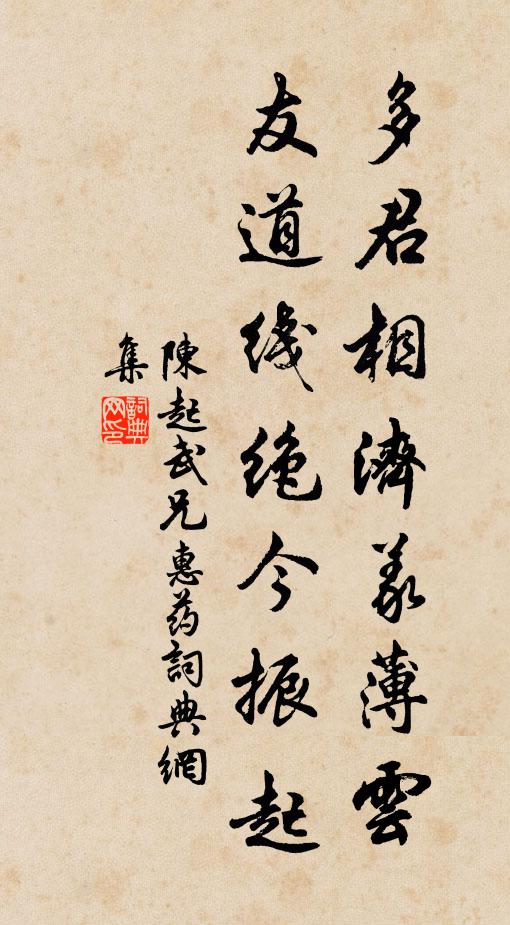 多君相濟義薄雲
友道线绝今振起
陳起武兄惠药詞典網
集
詞典网印